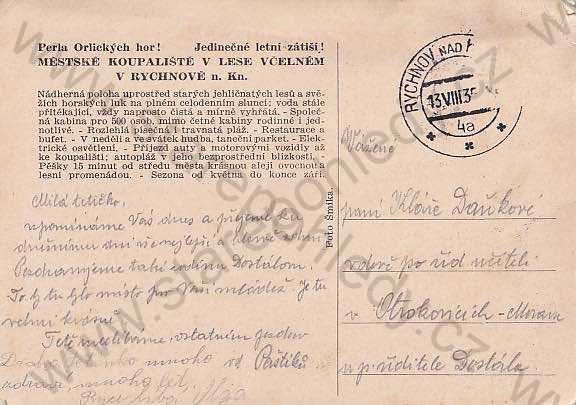 Perla Orlických hor! Jedinečné letní zátiší!
MĚSTSKÉ KOUPALIŠTĚ V LESE VČELNÉM
V RYCHNOVĚ n. Kn.
Nádherná poloha uprostřed starých jehličnatých lesů a svě-
žích horských luk na plném celodenním slunci; voda stále
přitékající, vždy naprosto čistá a mírně vyhřátá. - Společ-
ná kabina pro 500 osob, mimo četné kabiny rodinné i jed-
notlivé. - Rozlehlá písečná i travnatá pláž. - Restaurace a
bufet. - V neděli a ve svátek hudba, taneční parket. - Elek-
trické osvětlení. - Příjezd auty a motorovými vozidly až
ke koupališti; autopláž v jeho bezprostřední blízkosti. -
Pěšky 15 minut od středu města krásnou alejí ovocnou a
lesní promenádou. - Sezona od května do konce září.
Milá tetičko,
vzpomínáme Vás dnes a přejeme ku
dnešnímu dni
Pozdravujeme také rodinu Dostálom.
To by bylo místo pro Vaši mládež. Je tu
velmi krásně.
od Paštiků
mnoho
zdraví, mnoho let
Foto Šmika.
RYCHNOV NAD
13.VIII.35
4a
Vážená
paní Klára Daňkova
vdova po říd. učiteli
v Otrokovicích - Morava
u p. ředitele Dostála
www.stare-pohlednice.cz